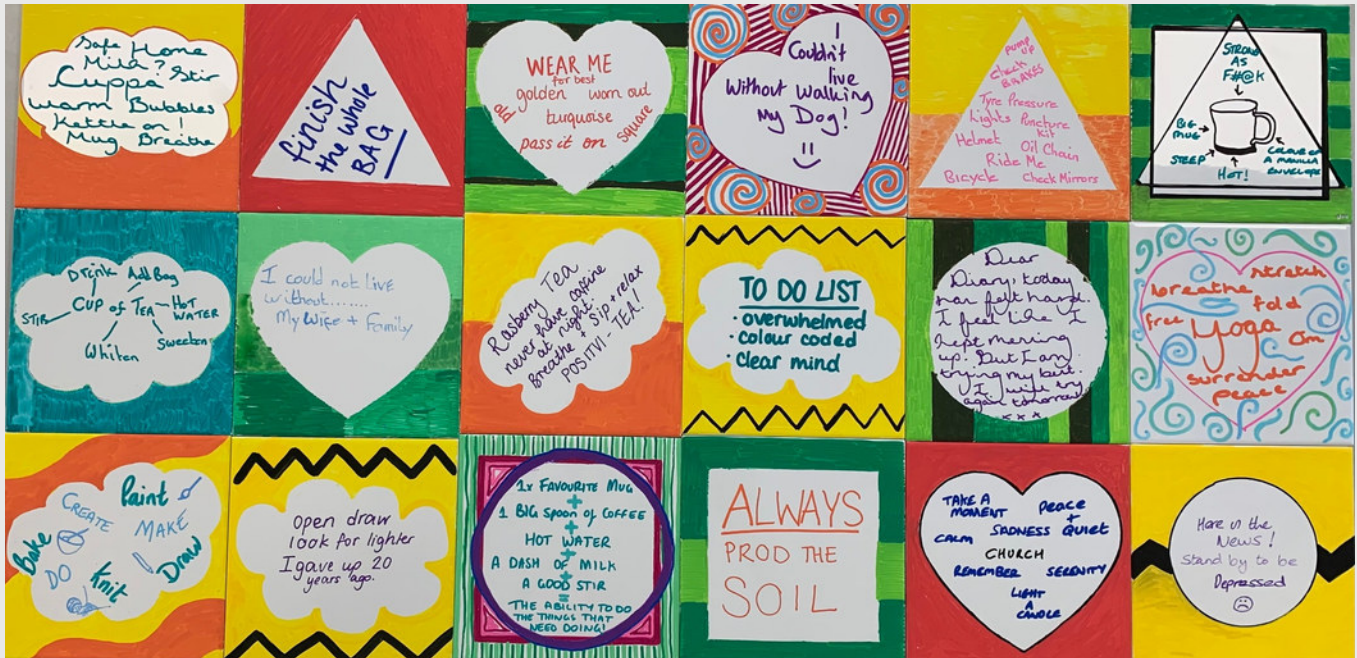 Safe Home
Milk? Stir
Cuppa
Warm Bubbles
Kettle on!
Mug Breathe
finish
the whole
BAG
WEAR ME
for best
old golden worn out
turquoise
pass it on square
I
Couldn't
live
Without Walking
My Dog!
PUMP
UP
Check
BRAKES
Tyre Pressure
Lights Puncture
Kit
Helmet Oil Chain
Ride Me
Bicycle Check Mirrors
STRONG
AS
F#@K
BIG
MUG
STEEP
HOT!
COLOUR OF
A MANILLA
ENVELOPE
Drink Add Bag
CUP OF TEA HOT
WATER
STIR
Sweeten
Whiten
I could not live
without.......
My Wife + Family
Rasberry TEA
never have caffine
at night.
Breathe + Sip + relax
POSITVI-TEA!
TO DO LIST
• overwhelmed
• colour coded
• clear mind
Dear
Diary, today
has felt hard.
I feel like I
kept messing
up. But I am
trying my best.
I will try
again tomorrow
x x x
stretch
breathe fold
free Yoga Om
surrender
peace
Paint
CREATE
MAKE
Bake
DO
Knit
Draw
open draw
look for lighter
I gave up 20
years ago.
1x FAVOURITE MUG
+
1 BIG Spoon of COFFEE
+
HOT WATER
+
A DASH OF MILK
+
A GOOD STIR
=
THE ABILITY TO DO
THE THINGS THAT
NEED DOING!
ALWAYS
PROD THE
SOIL
TAKE A
MOMENT Peace
+
CALM SADNESS QUIET
CHURCH
REMEMBER SERENITY
LIGHT
A
CANDLE
Here is the
News!
Stand by to be
Depressed